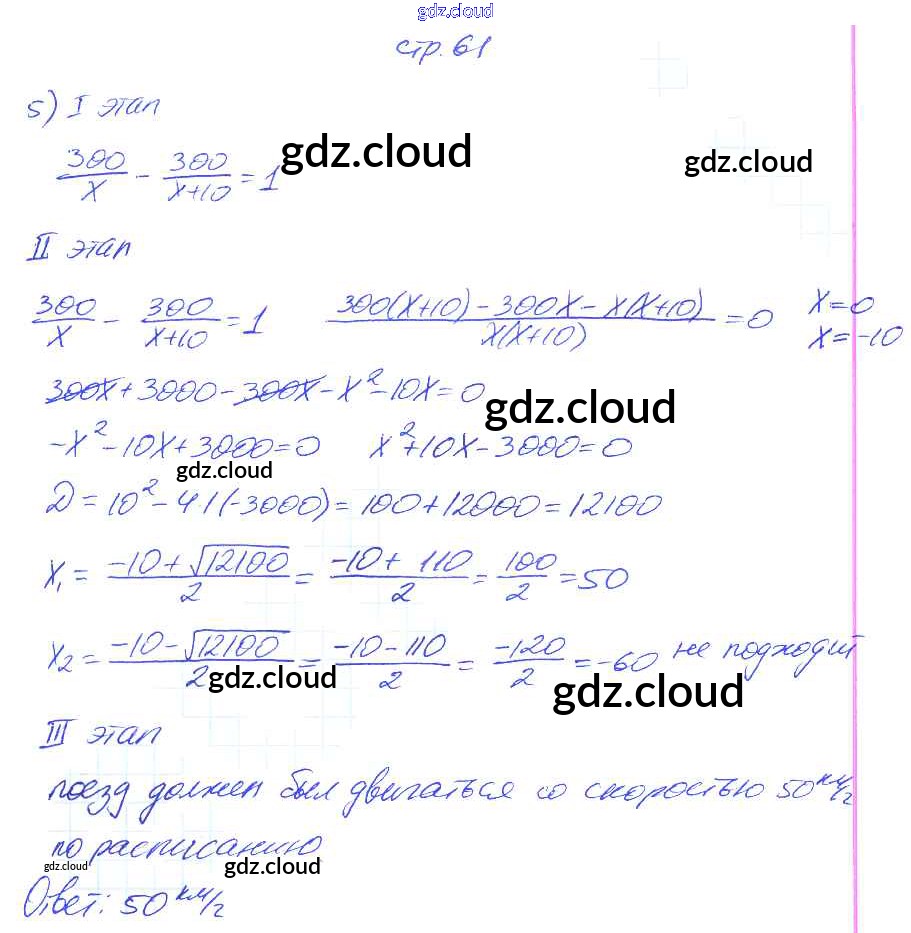 gdz.cloud
стр. 61
5) I этап
300/x - 300/(x+10) = 1 gdz.cloud gdz.cloud
II этап
300/x - 300/(x+10) = 1 (300(x+10) - 300x - x(x+10))/(x(x+10)) = 0 x=0
x=-10
300x + 3000 - 300x - x² - 10x = 0 gdz.cloud
-x² - 10x + 3000 = 0 x² + 10x - 3000 = 0
gdz.cloud
D = 10² - 4·1(-3000) = 100 + 12000 = 12100
x₁ = (-10 + √12100)/2 = (-10 + 110)/2 = 100/2 = 50
x₂ = (-10 - √12100)/2 = (-10 - 110)/2 = -120/2 = -60 не подходит
gdz.cloud gdz.cloud
III этап
поезд должен был двигаться со скоростью 50 км/ч
по расписанию
gdz.cloud gdz.cloud
Ответ: 50 км/ч